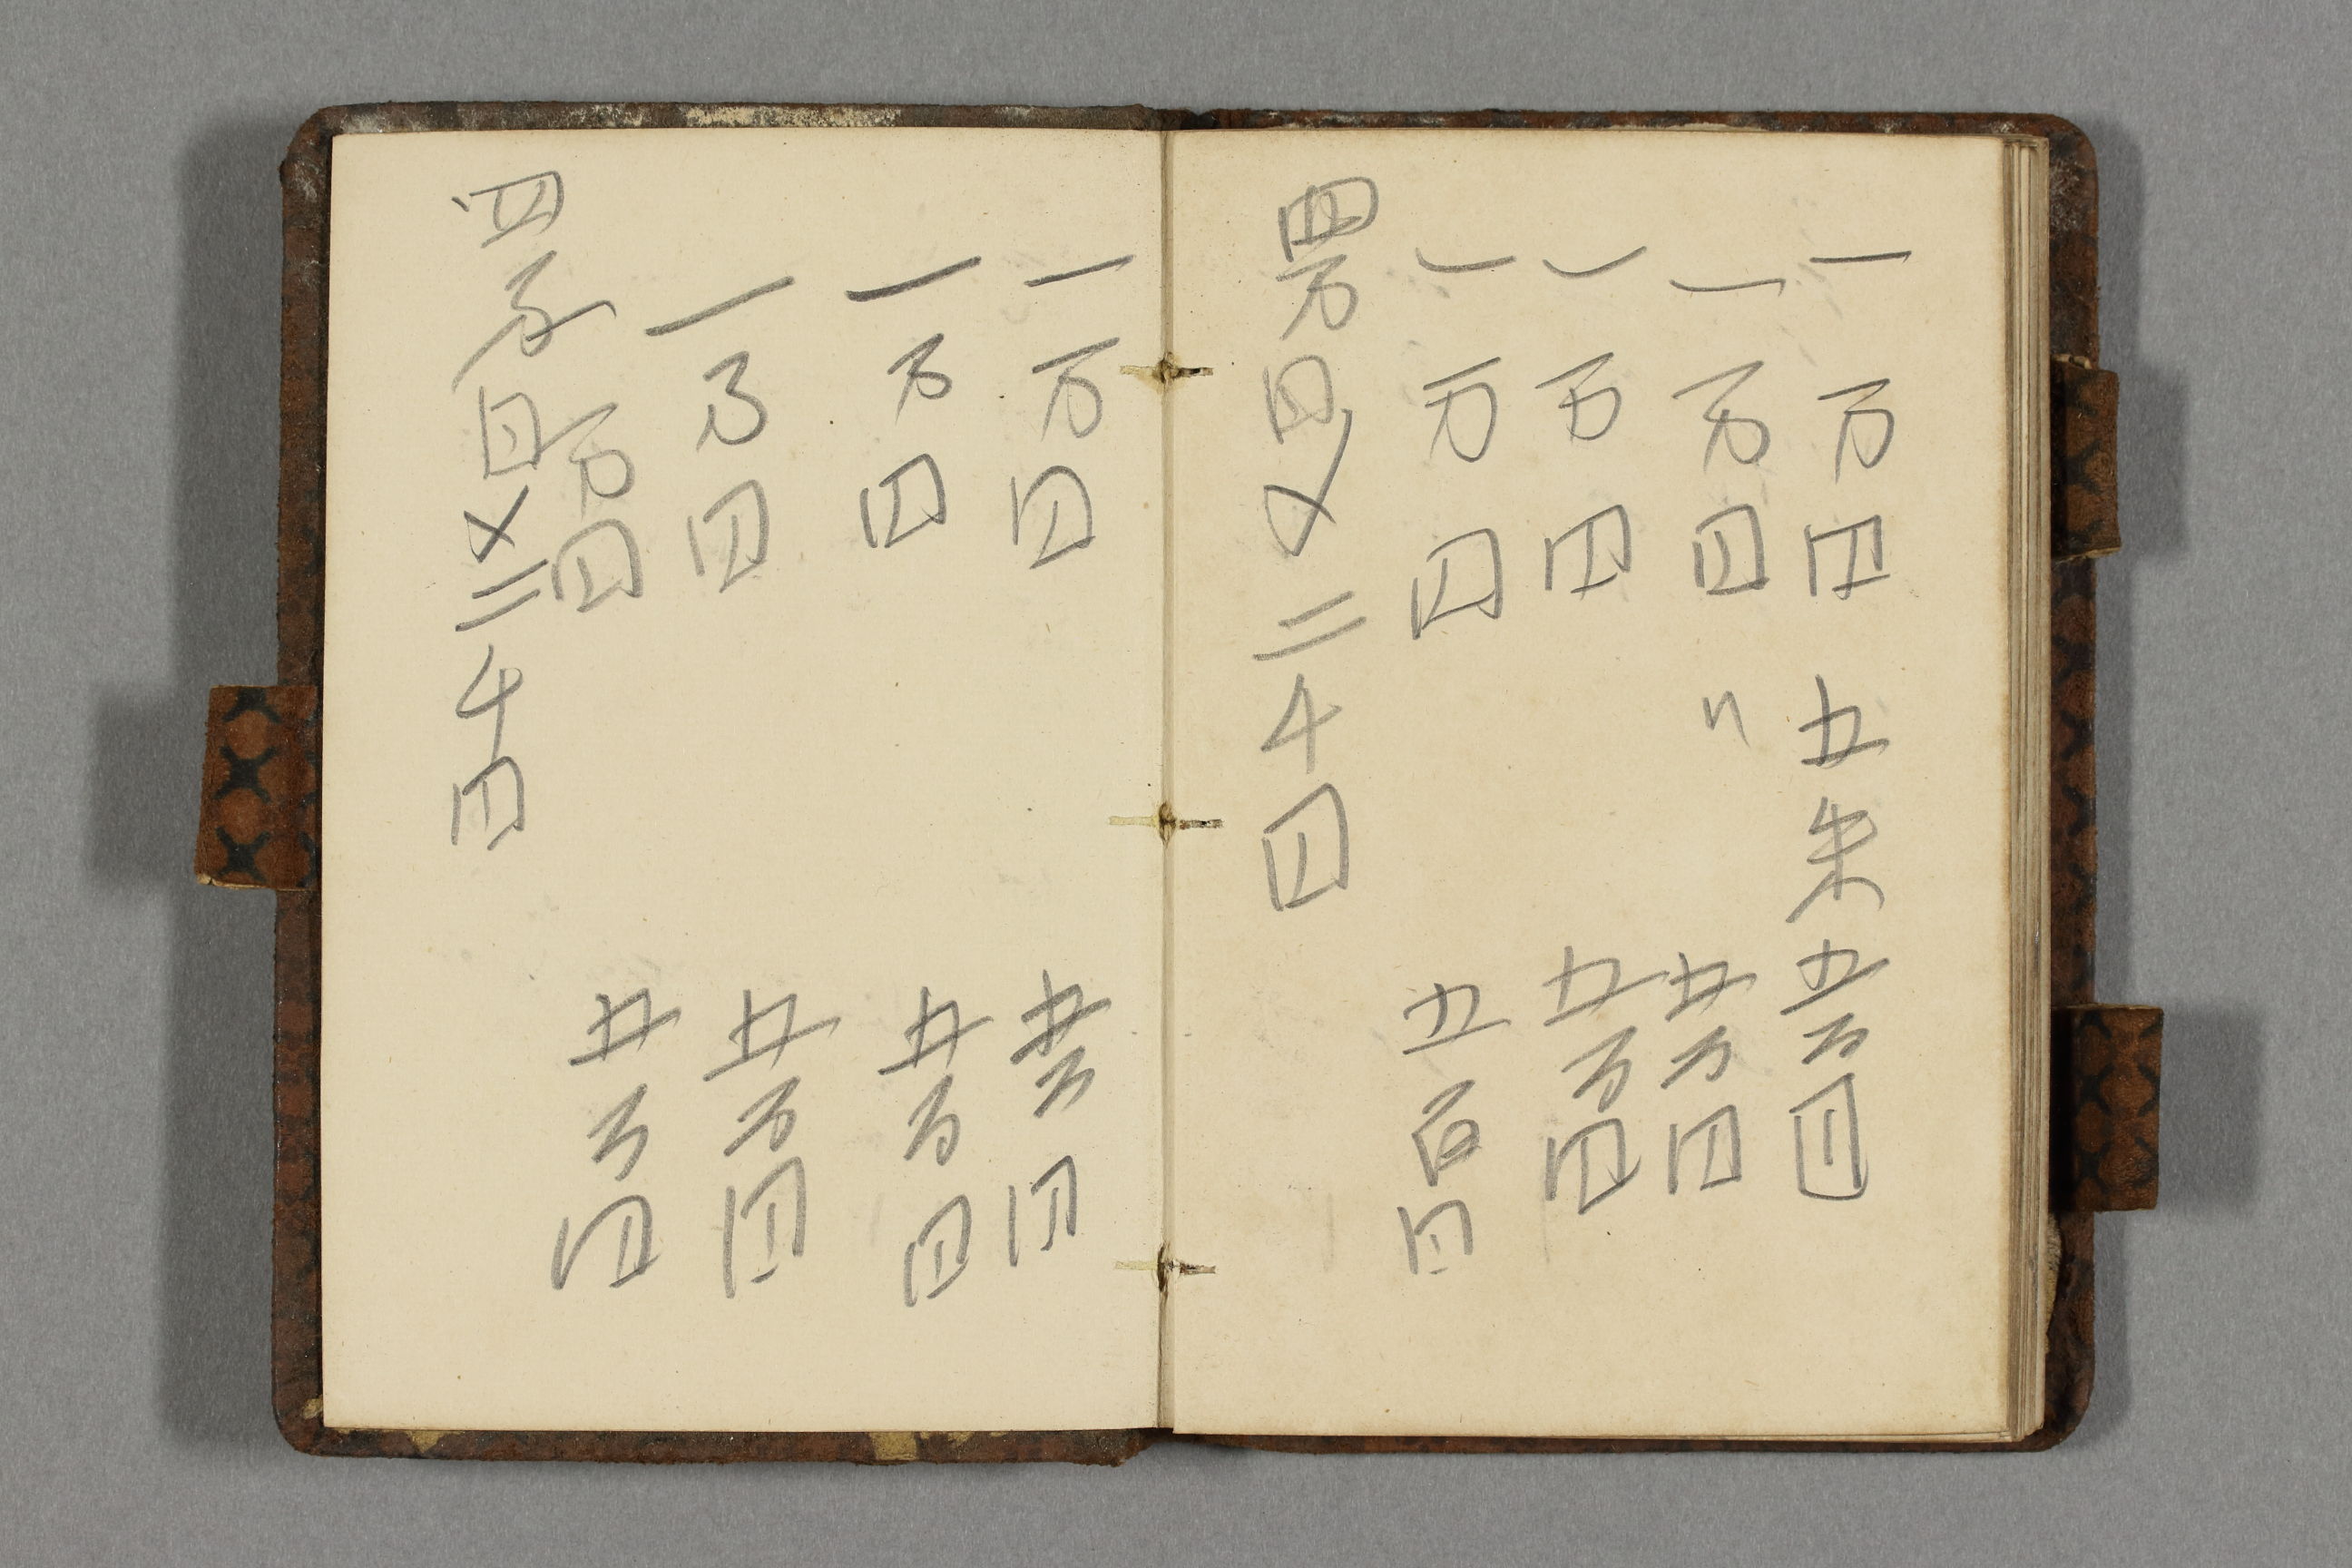 一万円 五朱 五百円
一万円 〃 五百円
一万円 五百円
一万円 五百円
四万円〆二千円
一万円 五百円
一万円 五百円
一万円 五百円
一万円 五百円
四万円〆二千円